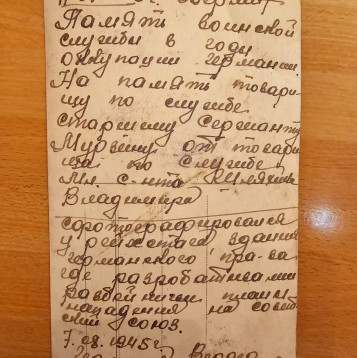 Память воинской
службы в году
оккупации германии.
На память товари-
щу по службе
старшему сержанту
от товари-
ща по службе
Мл. с-нта
Владимира
сфотографировался
у рейхстага здания
германского пра-ва
где разробативали
разбойничи планы
нападения на совет-
ский союз.
7.08.1945г